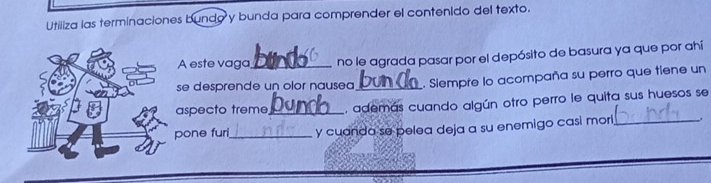 Utiliza las terminaciones bundo y bunda para comprender el contenido del texto.
A este vaga bundo no le agrada pasar por el depósito de basura ya que por ahí
se desprende un olor nausea bundo. Siempre lo acompaña su perro que tiene un
aspecto treme bundo, además cuando algún otro perro le quita sus huesos se
pone furi bundo y cuando se pelea deja a su enemigo casi mori bundo.